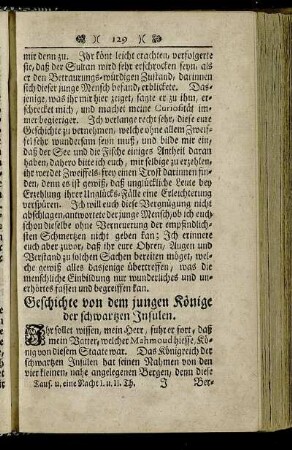 129
mir denn zu. Ihr könt leicht erachten, verfolgerte
sie, daß der Sultan wird sehr erschrocken seyn, als
er den Betraurungs-würdigen Zustand, darinnen
sich dieser junge Mensch befand, erblickete. Das-
jenige, was ihr mir hier zeiget, sagte er zu ihm, er-
schrecket mich, und machet meine Curiosität im-
mer begieriger. Ich verlange recht sehr, diese eure
Geschichte zu vernehmen, welche ohne allem Zweif-
fel sehr wundersam seyn muß, und bilde mir ein,
daß der See und die Fische einiges Antheil daran
haben, dahero bitte ich euch, mir selbige zu erzehlen,
ihr werdet Zweiffels-frey einen Trost darinnen fin-
den, denn es ist gewiß, daß unglückliche Leute bey
Erzehlung ihrer Unglücks-Fälle eine Erleichterung
verspüren. Ich will euch diese Vergnügung nicht
abschlagen, antwortete der junge Mensch, ob ich euch
schon dieselbe ohne Verneuerung der empfindlich-
sten Schmertzen nicht geben kan; Ich erinnere
euch aber zuvor, daß ihr eure Ohren, Augen und
Verstand zu solchen Sachen bereiten möget, wel-
che gewiß alles dasjenige übertreffen, was die
menschliche Einbildung nur wunderliches und un-
erhörtes fassen und begreiffen kan.
Geschichte von dem jungen Könige
der schwartzen Insulen.
Ihr sollet wissen, mein Herr, fuhr er fort, daß
mein Vatter, welcher Mahmoud hiesse, Kö-
nig von diesem Staate war. Das Königreich der
schwartzen Insulen hat seinen Nahmen von den
vier kleinen, nahe angelegenen Bergen, denn diese
Taus. u. eine Nacht I. u. II. Th. J Ber-